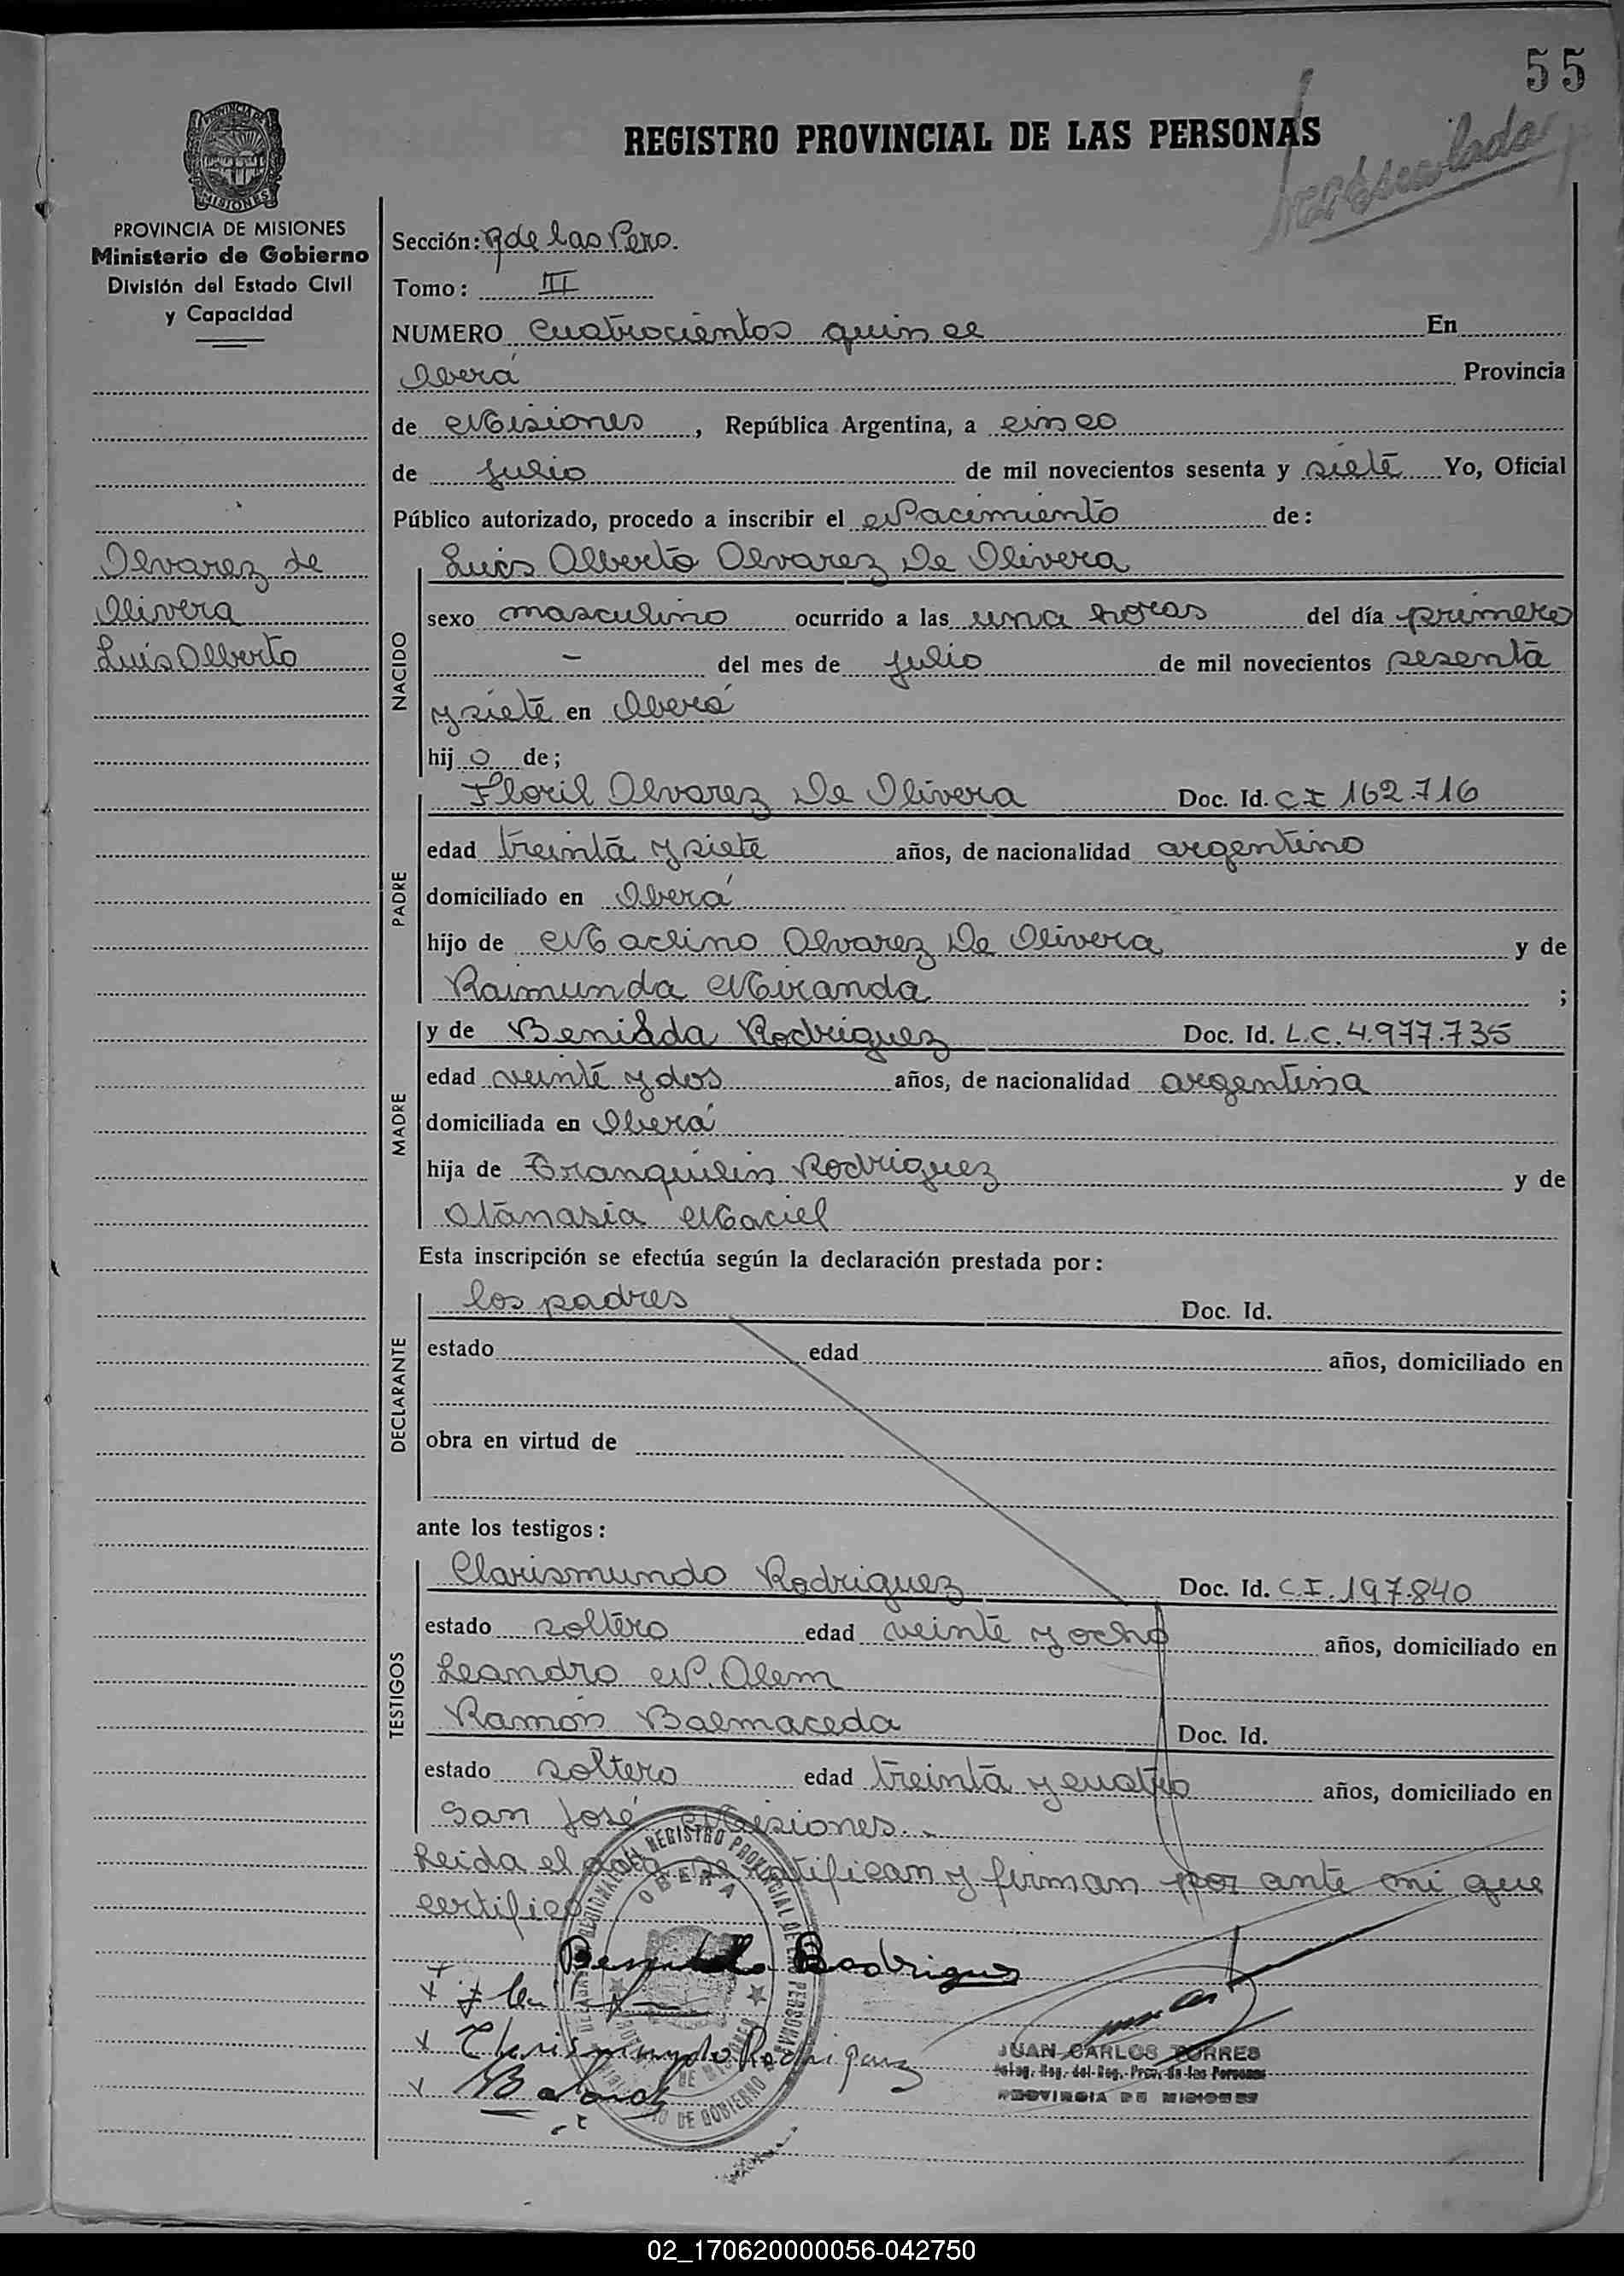 55
REGISTRO PROVINCIAL DE LAS PERSONAS
PROVINCIA DE MISIONES
PROVINCIA DE MISIONES
Ministerio de Gobierno
División del Estado Civil
y Capacidad
Sección: R de las Pers.
Tomo: III
NUMERO cuatrocientos quince En
Oberá Provincia
de Misiones, República Argentina, a cinco
de julio de mil novecientos sesenta y siete Yo, Oficial
Público autorizado, procedo a inscribir el Nacimiento de:
Alvarez de
Olivera
Luis Alberto
NACIDO
Luis Alberto Alvarez De Olivera
sexo masculino ocurrido a las una horas del día primero
- del mes de julio de mil novecientos sesenta
y siete en Oberá
hijo de;
PADRE
Floril Alvarez De Olivera Doc. Id. C I 162.716
edad treinta y siete años, de nacionalidad argentino
domiciliado en Oberá
hijo de Maclino Alvarez De Olivera y de
Raimunda Miranda ;
MADRE
y de Benilda Rodriguez Doc. Id. L.C. 4.977.735
edad veinte y dos años, de nacionalidad argentina
domiciliada en Oberá
hija de Tranquilin Rodriguez y de
Atanasia Maciel
Esta inscripción se efectúa según la declaración prestada por:
DECLARANTE
los padres Doc. Id.
estado edad años, domiciliado en
obra en virtud de
ante los testigos:
TESTIGOS
Clarismundo Rodriguez Doc. Id. C.I. 197.840
estado soltero edad veinte y ocho años, domiciliado en
Leandro N. Alem
Ramón Balmaceda Doc. Id.
estado soltero edad treinta y cuatro años, domiciliado en
San José Misiones.
Leida el acta se ratifican y firman por ante mi que
certifico
REGISTRO PROVINCIAL DE LAS PERSONAS
OBERA
Rodrigues
Clarismundo Rodriguez
JUAN CARLOS TORRES
Deleg. Reg. del Reg. Prov. de las Personas
PROVINCIA DE MISIONES
02_170620000056-042750